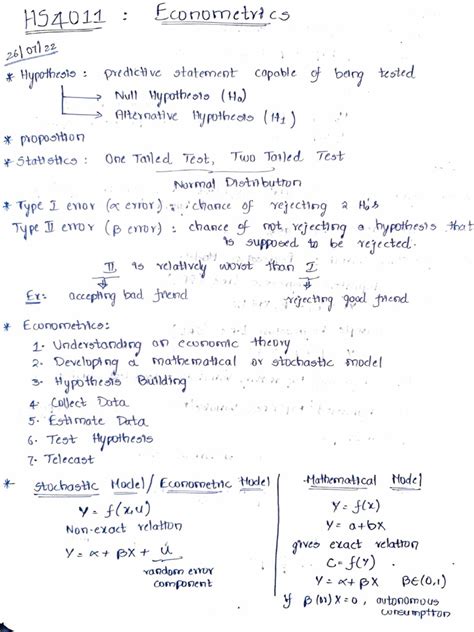 HS4011 : Econometrics
26/07/22
* Hypothesis : predictive statement capable of being tested
→ Null Hypothesis (H₀)
→ Alternative Hypothesis (H₁)
* proposition
* Statistics : One Tailed Test, Two Tailed Test
Normal Distribution
* Type I error (α error) : chance of rejecting a H₀'s
Type II error (β error) : chance of not rejecting a hypothesis that
is supposed to be rejected.
II is relatively worst than I
Ex: accepting bad friend rejecting good friend
* Econometrics:
1. Understanding an economic theory
2. Developing a mathematical or stochastic model
3. Hypothesis Building
4. Collect Data
5. Estimate Data
6. Test Hypothesis
7. Telecast
* Stochastic Model / Econometric Model
Y = f(x,u)
Non-exact relation
Y = α + βX + u
random error
component
Mathematical Model
Y = f(x)
Y = a+bx
gives exact relation
C = f(Y)
Y = α + βX β∈(0,1)
if β (or) X = 0, autonomous
consumption